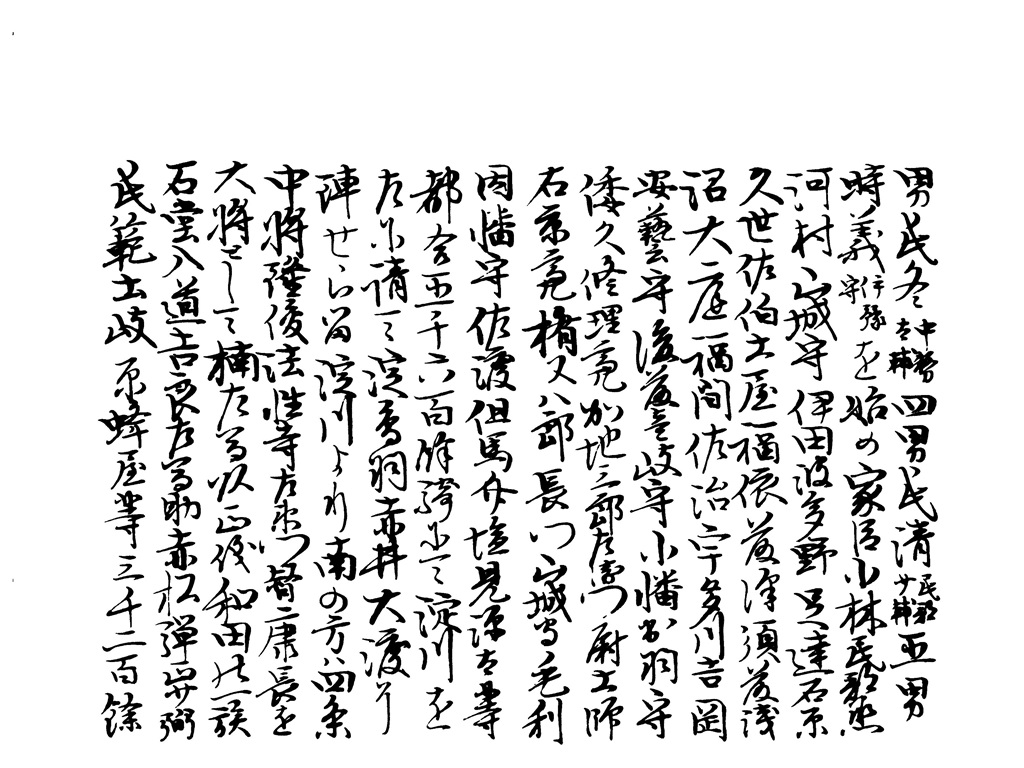 男氏冬中務大輔四男氏清民部少輔五男
時義伊豫守を始め家臣小林民部丞
河村山城守伊田波多野足達石原
久世佐伯土屋福依前澤須藤浅
沼大庭福間佐治宇多川吉岡
安藝守後藤壱岐守小幡出羽守
倭久修理亮加地三郎左衛門尉土師
右京亮楮又八郎長門山城守毛利
因幡守佐渡但馬介塩見源太等
都合五千六百餘騎にて淀川を
左に請て淀鳥羽赤井大渡り
陣せらる淀川より南の方八四条
中将隆俊法性寺左衛門督康長を
大将として楠左馬頭正儀和田一族
石堂入道吉良左馬助赤松弾正少弼
氏範土岐原蜂屋等三千二百餘